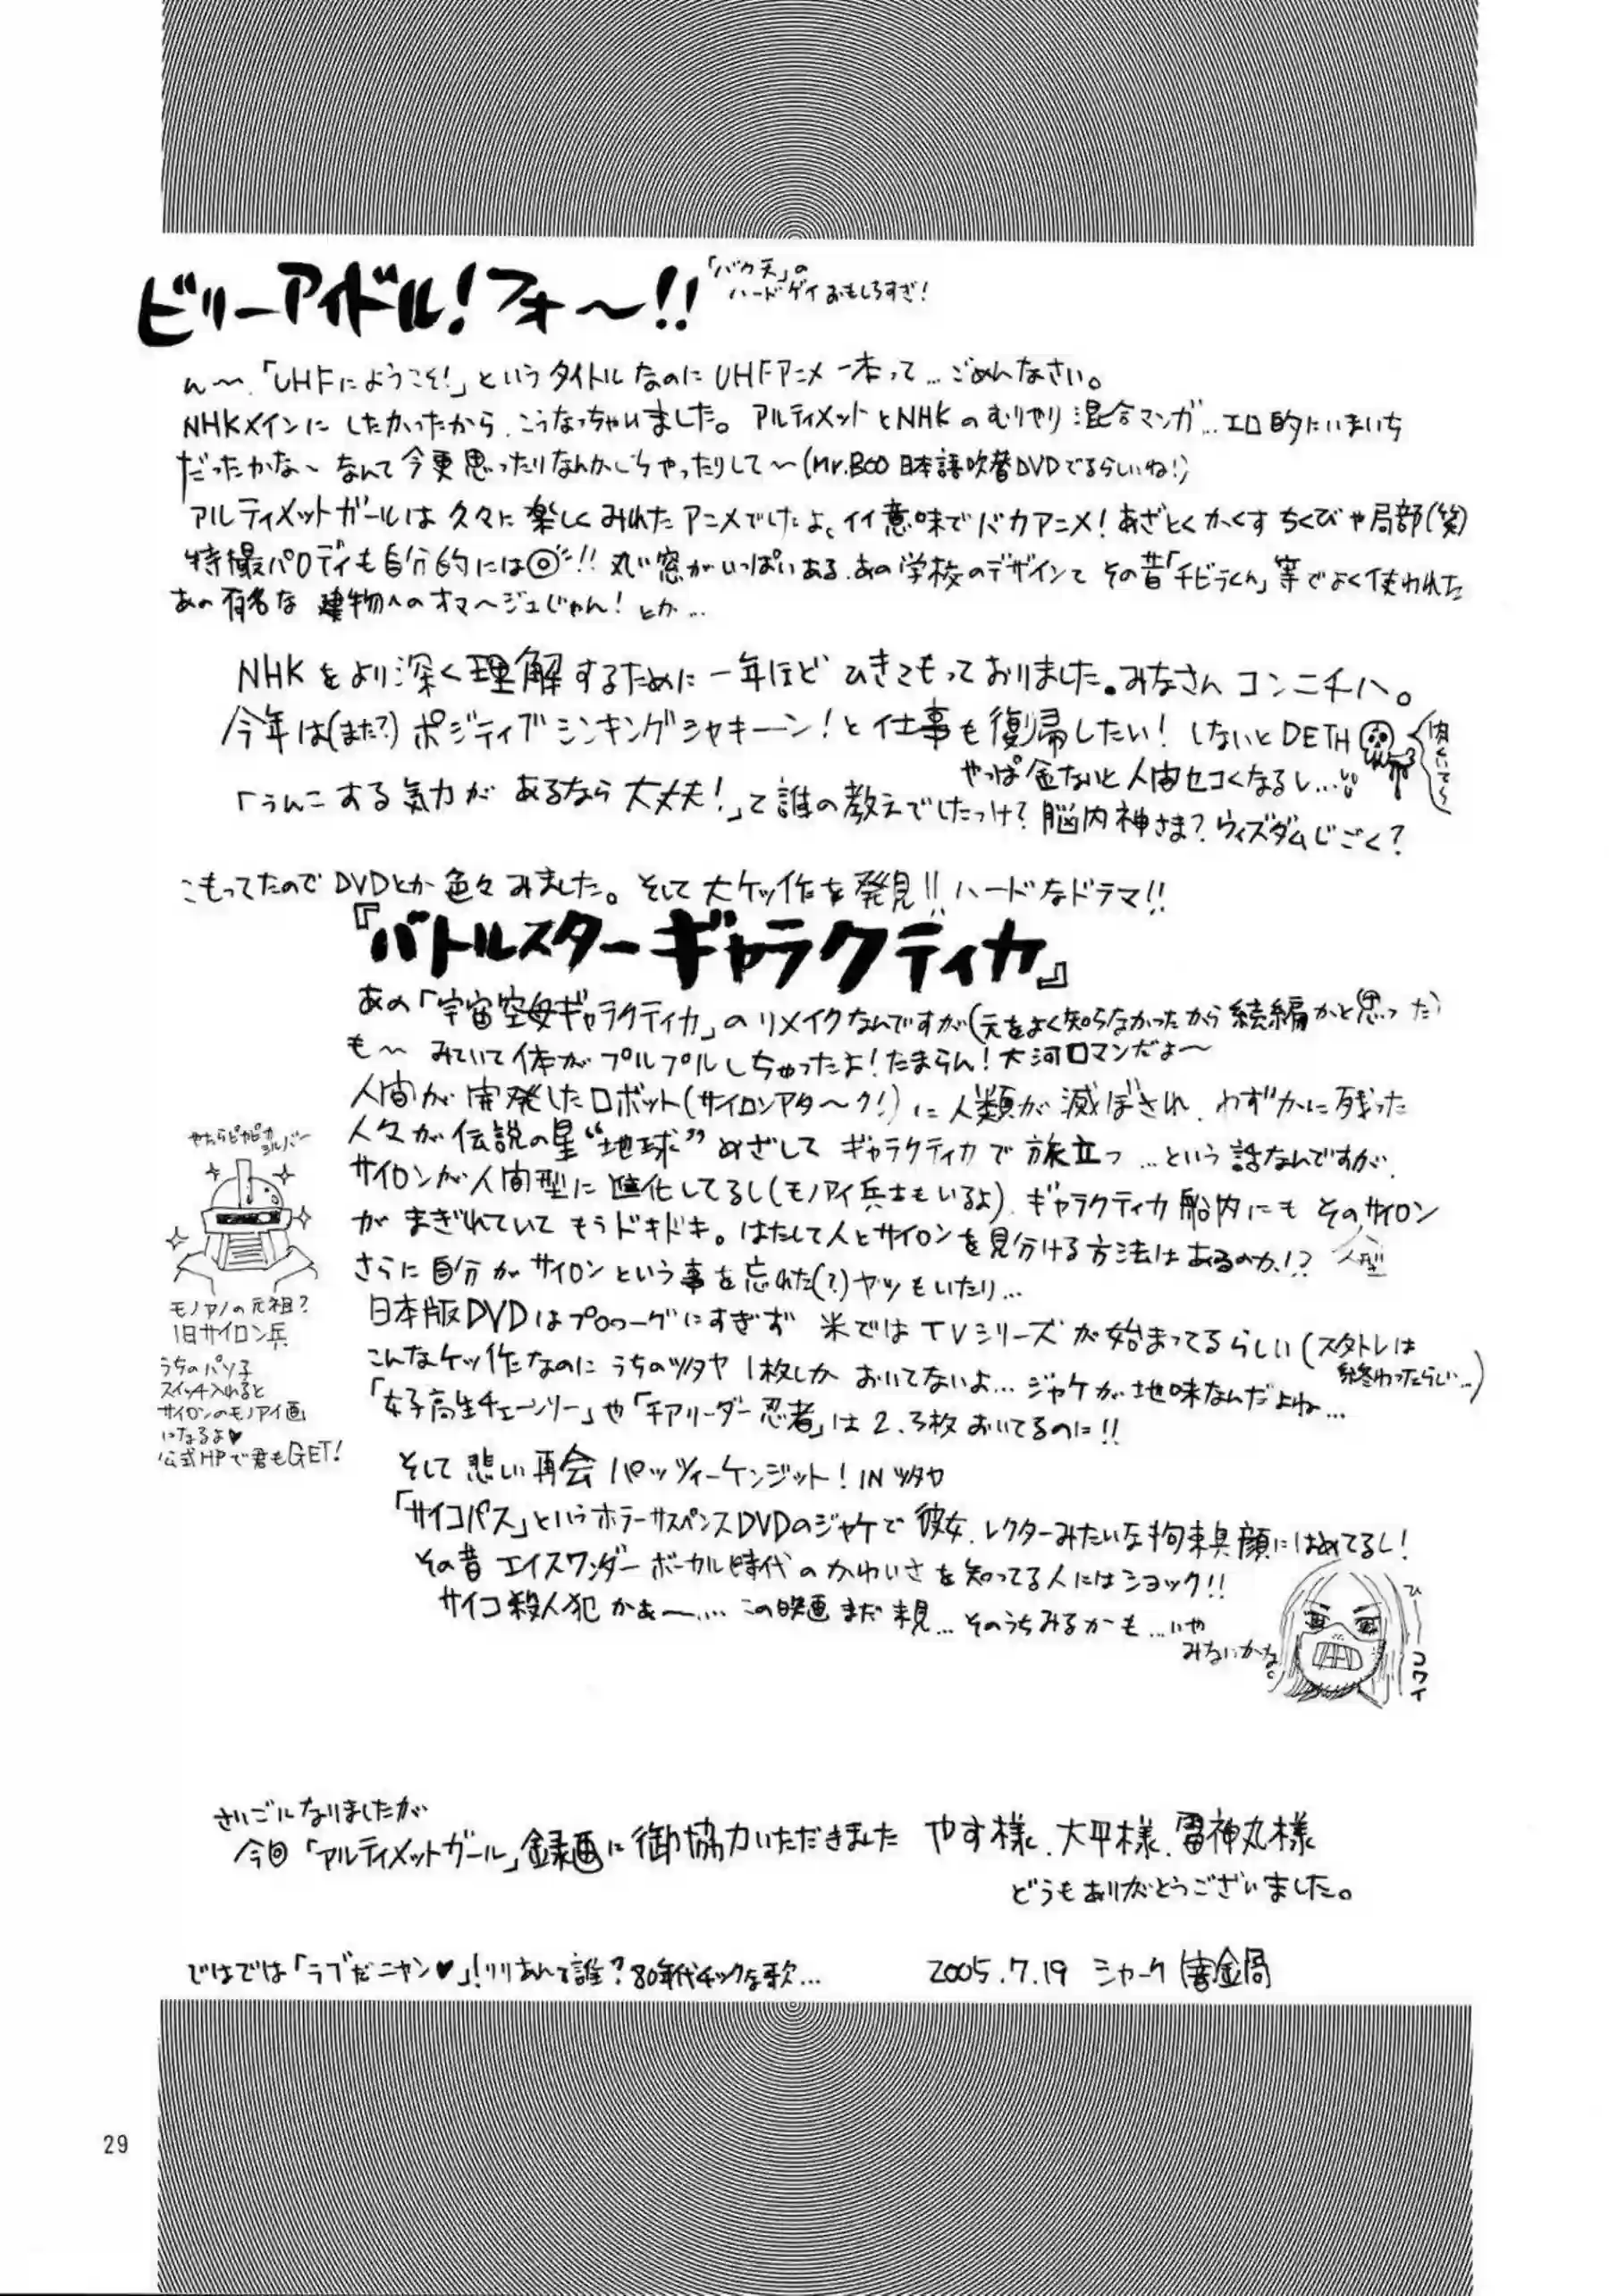 ビリーアイドル!フォ〜!!
「バク天」の
ハードゲイおもしろすぎ!
ん〜、「UHFにようこそ!」というタイトルなのにUHFアニメ一本って…ごめんなさい。
NHKメインにしたかったから、こうなっちゃいました。アルティメットとNHKのむりやり混合マンガ…エロ的にいまいち
だったかな〜なんて今更思ったりなんかしちゃったりして〜(Mr.BOO日本語吹替DVDでるらしいね!)
アルティメットガールは久々に楽しくみれたアニメでしたよ、イイ意味でバカアニメ!あざとくかくすちくびや局部(笑)
特撮パロディも自分的には◎!!丸い窓がいっぱいある、あの学校のデザインてその昔「チビラくん」等でよく使われた
あの有名な建物へのオマージュじゃん!とか…
NHKをより深く理解するために一年ほどひきこもっておりました。みなさんコンニチハ。
今年は(また?)ポジティブシンキングシャキーン!と仕事も復帰したい!しないとDETH
肉くいてぇ〜
やっぱ金ないと人間セコくなるし…
「うんこする気力があるなら大丈夫!」て誰の教えでしたっけ?脳内神さま?ウィズダムじごく?
こもってたのでDVDとか色々みました。そして大ケッ作を発見!!ハードなドラマ!!
『バトルスターギャラクティカ』
あの「宇宙空母ギャラクティカ」のリメイクなんですが(元をよく知らなかったから続編かと思った)
も〜みていて体がプルプルしちゃったよ!たまらん!大河ロマンだよ〜
人間が開発したロボット(サイロンアタ〜ク!)に人類が滅ぼされ、わずかに残った
人々が伝説の星“地球”めざしてギャラクティカで旅立つ…という話なんですが、
サイロンが人間型に進化してるし(モノアイ兵士もいるよ)、ギャラクティカ船内にもそのサイロン
人型
がまぎれていてもうドキドキ。はたして人とサイロンを見分ける方法はあるのか!?
さらに自分がサイロンという事を忘れた(?)ヤツもいたり…
日本版DVDはプロローグにすぎず 米ではTVシリーズが始まってるらしい(スタトレは
終わったらしい…)
こんなケッ作なのにうちのツタヤ1枚しかおいてないよ…ジャケが地味なんだよね…
「女子高生チェーンソー」や「チアリーダー忍者」は2、3枚おいてるのに!!
やたらピカピカ
シルバー
モノアイの元祖?
旧サイロン兵
うちのパソ子
スイッチ入れると
サイロンのモノアイ画
になるよ♥
公式HPで君もGET!
そして悲しい再会パッツィーケンジット!INツタヤ
「サイコパス」というホラーサスペンスDVDのジャケで彼女、レクターみたいな拘束具顔にはめてるし!
その昔エイスワンダーボーカル時代のかわいさを知ってる人にはショック!!
サイコ殺人犯かぁ〜…この映画まだ未見…そのうちみるかも…いや
みないかな。
ひーコワイ
さいごになりましたが
今回「アルティメットガール」録画に御協力いただきました やす様、大平様、雷神丸様
どうもありがとうございました。
ではでは「ラブだニャン♥」!リリあんて誰?80年代チックな歌…
2005.7.19 シャーク
29